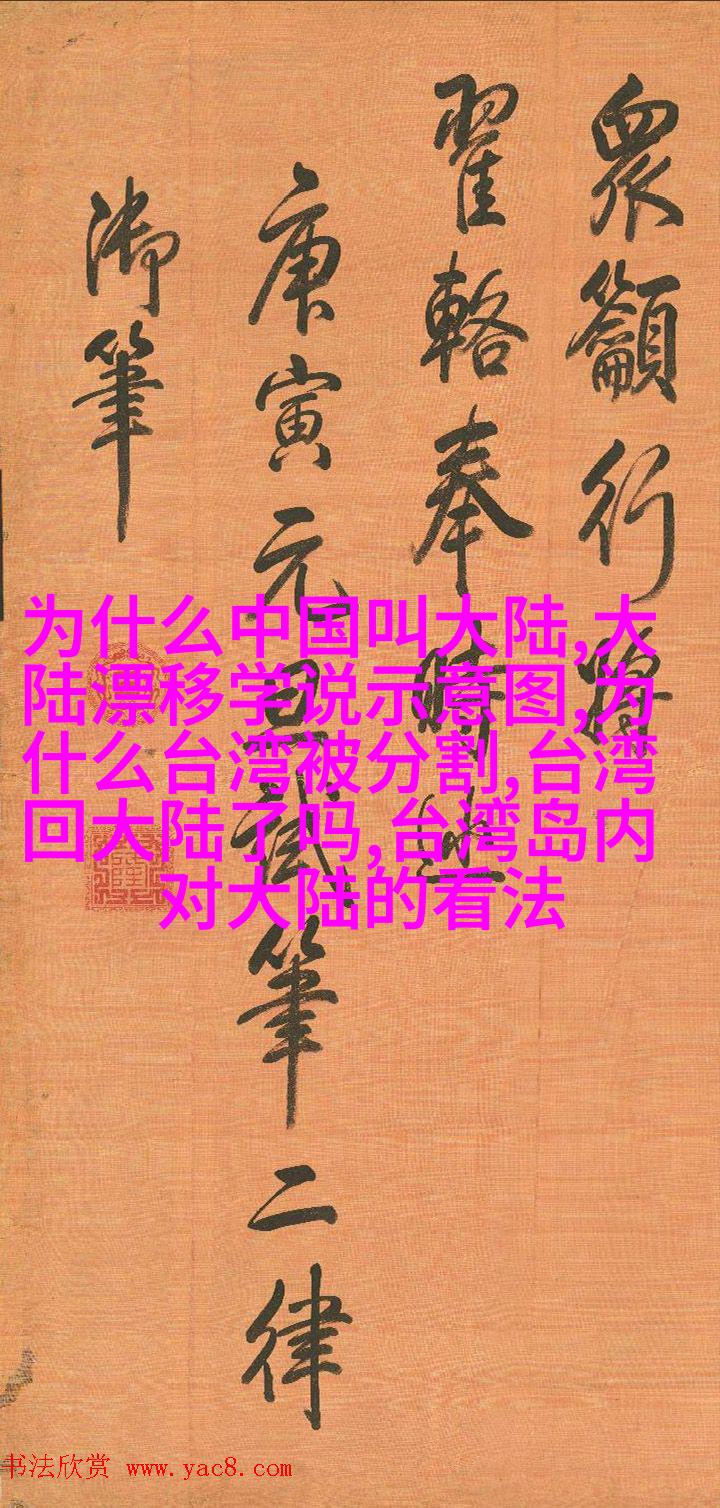 眾籲行將
翟輅奉時巡
庚寅元旦試筆二律
御筆
为什么中国叫大陆,大
陆漂移学说示意图,为
什么台湾被分割,台湾
回大陆了吗,台湾岛内
对大陆的看法
书法欣赏 www.yac8.com